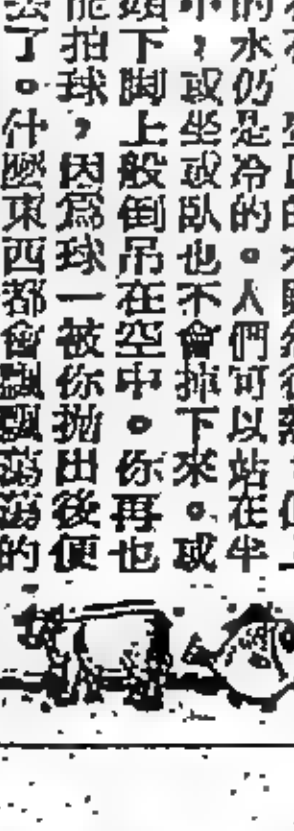 的水仍是冷的。人們可以站在半
，或坐或臥也不會掉下來。或
頭下脚上般倒吊在空中。你再也
能拍球，因爲球一被你拋出後便
了。什麼東西都會飄飄蕩蕩的